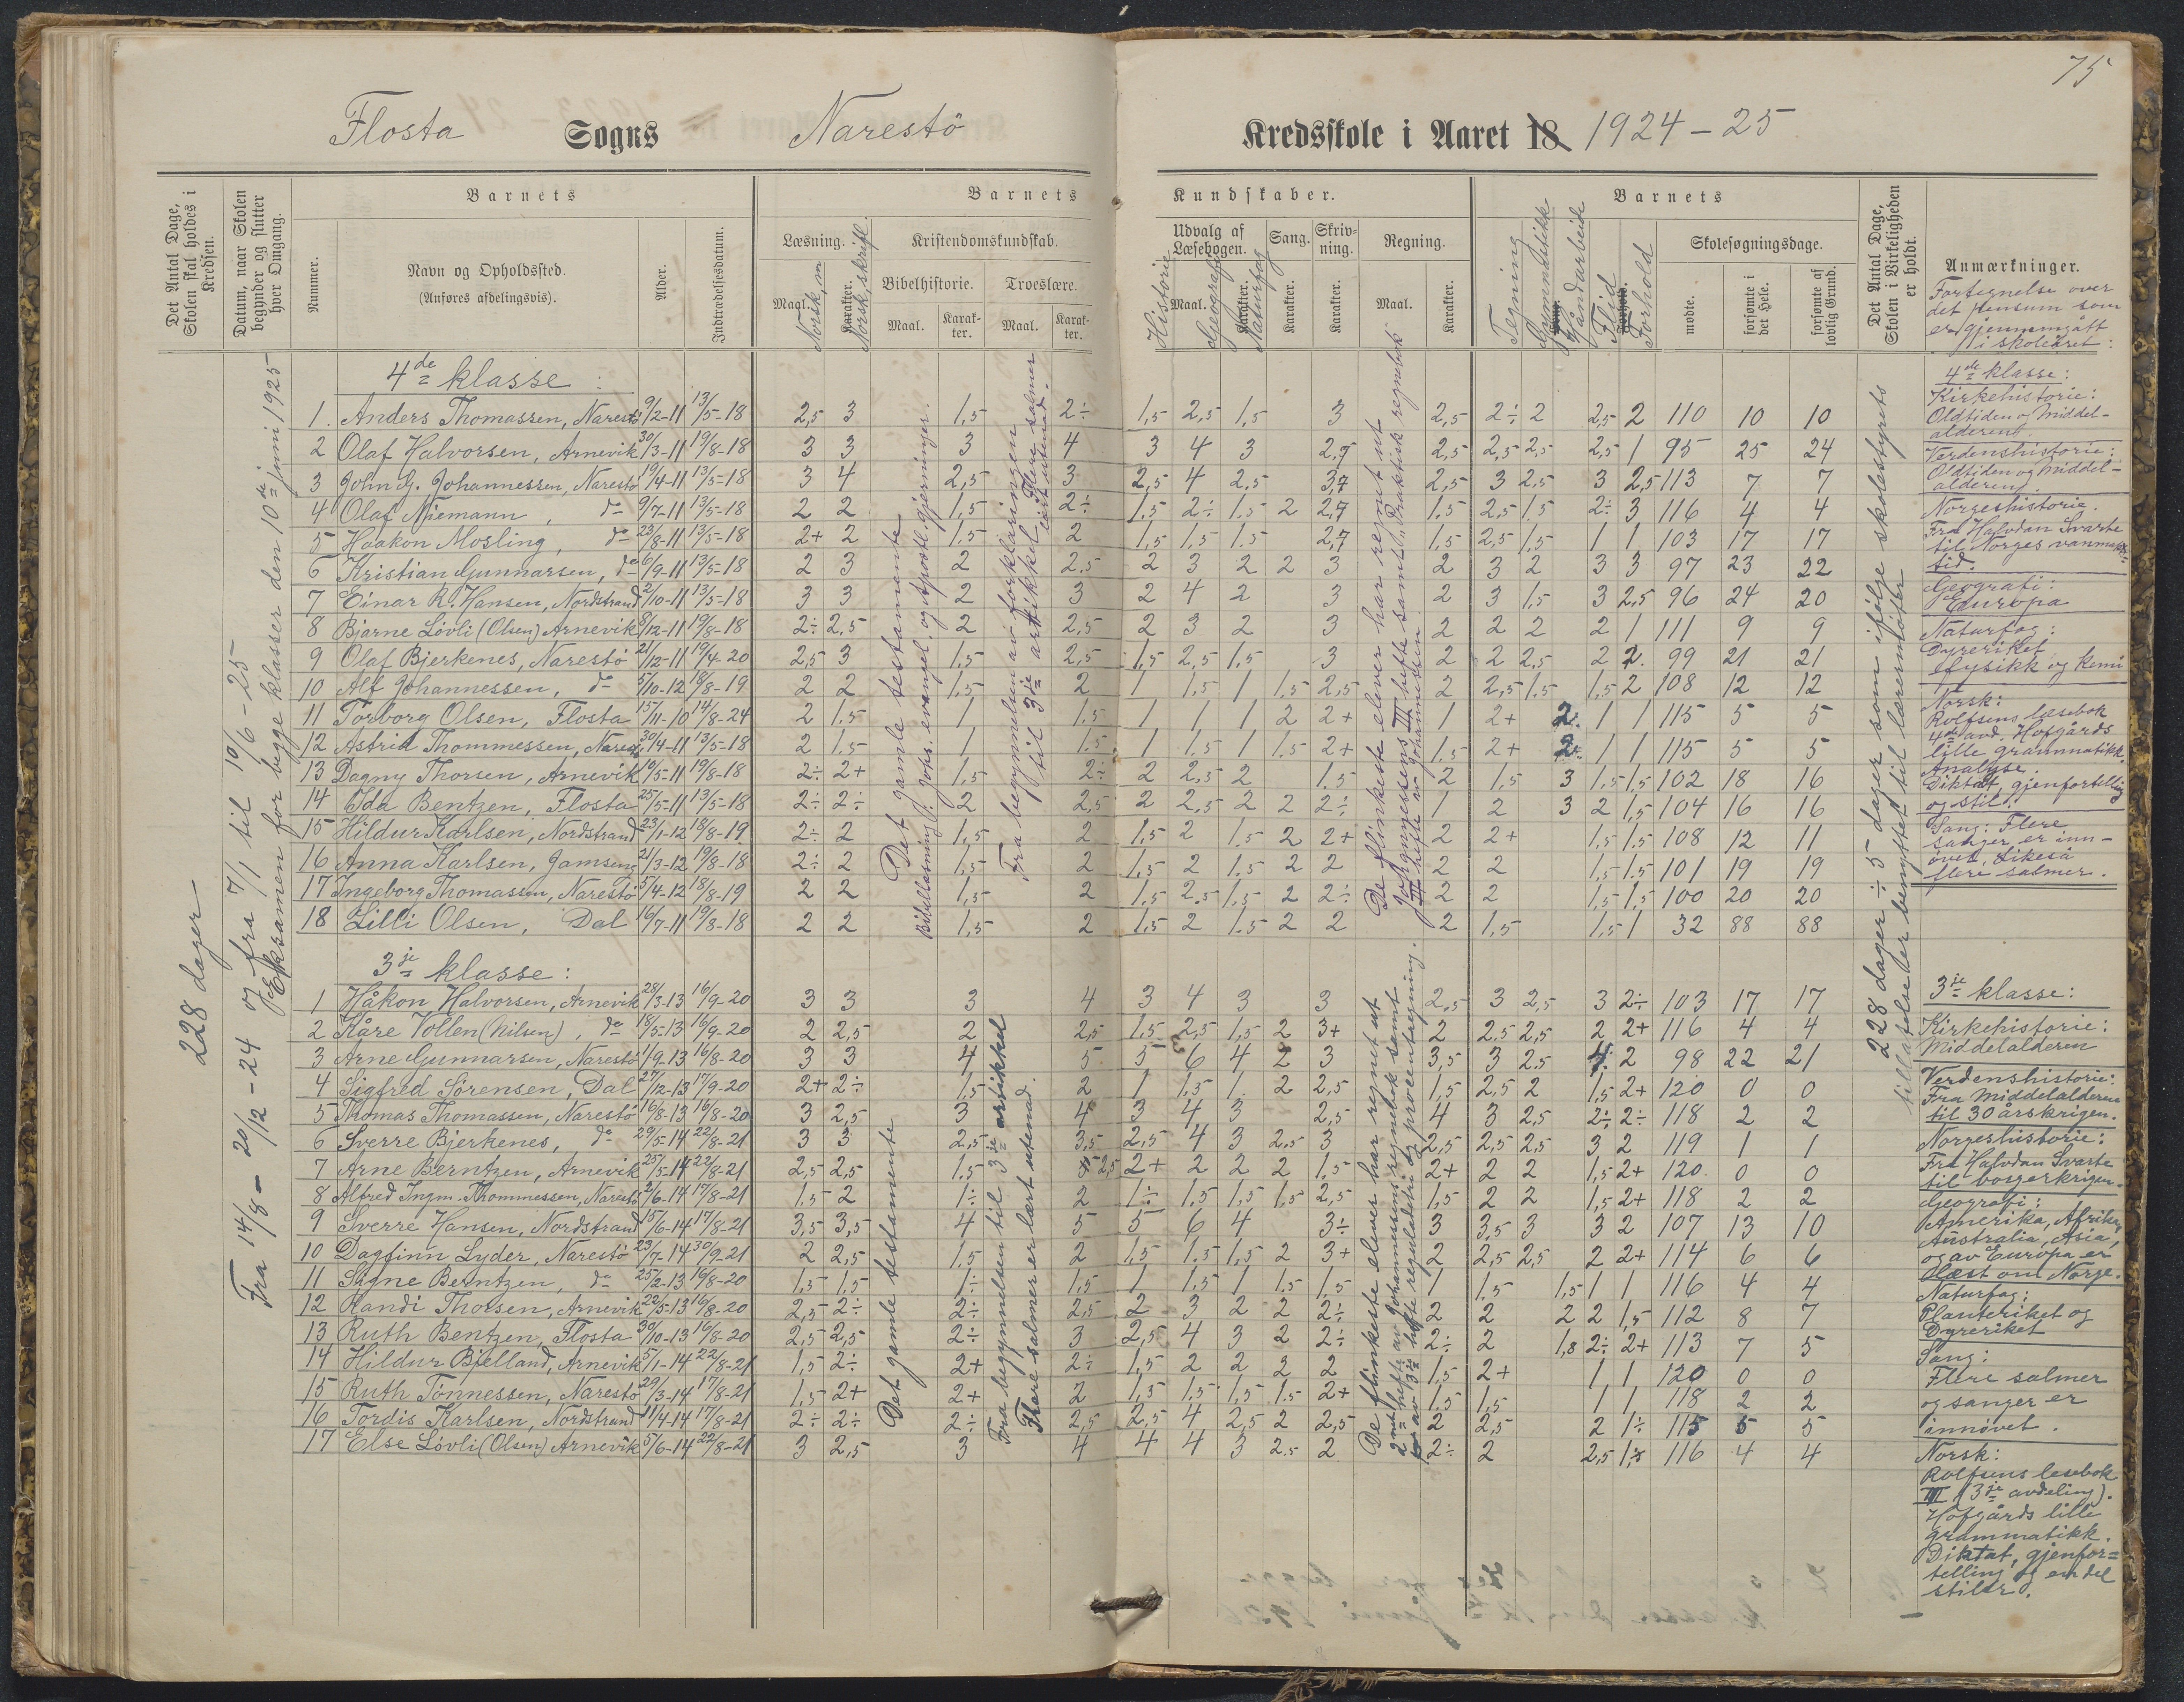 75
Flosta Sogns Narestö Kredsskole i Aaret 18 1924-25
Det Antal Dage, Skolen skal holdes i Kredsen.
Datum, naar Skolen begynder og slutter hver Omgang.
Nummer.
Barnets
Navn og Opholdssted.
(Anføres afdelingsvis).
Alder.
Indtrædelsesdatum.
Barnets Kundskaber.
Læsning.
Maal. Norsk, m
Karakter. Norsk, skriftl.
Kristendomskundskab.
Bibelhistorie.
Maal.
Karakter.
Troeslære.
Maal.
Karakter.
Udvalg af Læsebogen.
Historie
Maal.
Geografi
Karakter.
Naturfag
Sang.
Karakter.
Skrivning.
Karakter.
Regning.
Maal.
Karakter.
Barnets
Tegning
Gymnastikk
Håndarbeide
Flid
Forhold
Skolesøgningsdage.
mødte.
forsømte i det Hele.
forsømte af lovlig Grund.
Det Antal Dage, Skolen i Virkeligheden er holdt.
Anmærkninger.
Fortegnelse over
det pensum som
er gjennemgått
i skoleåret:
228 dager
Fra 14/8 - 20/12 - 24 og fra 7/1 til 10/6 - 25
Eksamen for begge klasser den 10de juni 1925
4de klasse:
1. Anders Thomassen, Narestö 9/2-11 13/5-18 2,5 3 1,5 2÷ 1,5 2,5 1,5 3 2,5 2÷ 2 2,5 2 110 10 10
2 Olaf Halvorsen, Arnevik 30/3-11 19/8-18 3 3 3 4 3 4 3 2,7 2,5 2,5 2,5 2,5 1 95 25 24
3 John G. Johannessen, Narestö 19/4-11 13/5-18 3 4 2,5 3 2,5 4 2,5 3,7 2,5 3 2,5 3 2,5 113 7 7
4 Olaf Niemann, do 9/7-11 13/5-18 2 2 1,5 2÷ 1,5 2÷ 1,5 2 2,7 1,5 2,5 1,5 2÷ 3 116 4 4
5 Haakon Mosling, do 23/8-11 13/5-18 2+ 2 1,5 2 1,5 1,5 1,5 2,7 1,5 2,5 1,5 1 1 103 17 17
6 Kristian Gunnarsen, do 6/9-11 13/5-18 2 3 2 2,5 2 3 2 2 3 2 3 2 3 3 97 23 22
7 Einar R. Hansen, Nordstrand 2/10-11 13/5-18 3 3 2 3 2 4 2 3 2 3 1,5 3 2,5 96 24 20
8 Bjarne Lövli (Olsen) Arnevik 8/12-11 19/8-18 2÷ 2,5 2 2,5 2 3 2 3 2 2 2 2 1 111 9 9
9 Olaf Bjerkenes, Narestö 21/12-11 19/4-20 2,5 3 1,5 2,5 1,5 2,5 1,5 3 2 2 2,5 2 2. 99 21 21
10 Alf Johannessen, do 5/10-12 18/8-19 2 2 1,5 2 1 1,5 1 1,5 2,5 2 2,5 1,5 1,5 2 108 12 12
11 Torborg Olsen, Flosta 15/11-10 14/8-24 2 1,5 1 1,5 1 1 1 2 2+ 1 2+ 2. 1 1 115 5 5
12 Astrid Thommessen, Narestö 30/4-11 13/5-18 2 1,5 1 1,5 1 1,5 1 1,5 2+ 1,5 2+ 2. 1 1 115 5 5
13 Dagny Thorsen, Arnevik 10/5-11 19/8-18 2÷ 2+ 1,5 2÷ 2 2,5 2 1,5 2 1,5 3 1,5 1,5 102 18 16
14 Ida Bentzen, Flosta 25/5-11 13/5-18 2÷ 2÷ 2 2,5 2 2,5 2 2 2÷ 1 2 3 2 1,5 104 16 16
15 Hildur Karlsen, Nordstrand 23/1-12 18/8-19 2÷ 2 1,5 2 1,5 2 1,5 2 2+ 2 2+ 1,5 1,5 108 12 11
16 Anna Karlsen, 21/3-12 19/8-18 2÷ 2 1,5 2 1,5 2 1,5 2 2 2 2 1,5 1,5 101 19 19
17 Ingeborg Thomassen, Narestö 5/4-12 18/8-19 2 2 1,5 2 1,5 2,5 1,5 2 2÷ 2 2 1,5 1,5 100 20 20
18 Lilli Olsen, Dal 16/7-11 19/8-18 2 2 1,5 2 1,5 2 1,5 2 2 2 1,5 1,5 1 32 88 88
Det gamle testamente
Bibellæsning: Johs. evangel. og Apostl. gjerninger.
Fra begynnelsen av forklaringen
til 3je artikkel. Flere salmer
lært utenad.
De flinkeste elever har regnet ut
Johannessens III hefte samt „Praktisk regnebok"
III hefte av Johannessen
3je klasse:
1 Håkon Halvorsen, Arnevik 28/3-13 16/9-20 3 3 3 4 3 4 3 3 2,5 3 2,5 3 2÷ 103 17 17
2 Kåre Vollen (Nilsen), do 18/5-13 16/9-20 2 2,5 2 2,5 1,5 2,5 1,5 2 3+ 2 2,5 2,5 2 2+ 116 4 4
3 Arne Gunnarsen, Narestö 1/9-13 16/8-20 3 3 4 5 5 6 4 2 3 3,5 3 2,5 4 2 98 22 21
4 Sigfred Sörensen, Dal 27/12-13 17/9-20 2+ 2÷ 1,5 2 1 1,5 1 2 2,5 1,5 2,5 2 1,5 2+ 120 0 0
5 Thomas Thomassen, Narestö 16/8-13 16/8-20 3 2,5 3 4 3 4 3 2,5 4 3 2,5 2÷ 2÷ 118 2 2
6 Sverre Bjerkenes, do 29/5-14 22/8-21 3 3 2,5 3,5 2,5 4 3 2,5 3 2,5 2,5 2,5 3 2 119 1 1
7 Arne Berntzen, Arnevik 25/5-14 22/8-21 2,5 2,5 1,5 2,5 2+ 2 2 2 1,5 2+ 2 2 1,5 2+ 120 0 0
8 Alfred Ingm. Thommessen, Narestö 2/6-14 17/8-21 1,5 2 1÷ 2 1÷ 1,5 1,5 1,5 2,5 1,5 2 2 1,5 2+ 118 2 2
9 Sverre Hansen, Nordstrand 15/6-14 17/8-21 3,5 3,5 4 5 5 6 4 3÷ 3 3,5 3 3 2 107 13 10
10 Dagfinn Lyder, Narestö 23/7-14 30/9-21 2 2,5 1,5 2 1,5 1,5 1,5 2 3+ 2 2,5 2,5 2 2+ 114 6 6
11 Signe Berntzen, do 25/2-13 16/8-20 1,5 1,5 1÷ 1,5 1 1,5 1 1,5 1,5 1 1,5 1,5 1 1 116 4 4
12 Randi Thorsen, Arnevik 22/5-13 16/8-20 2,5 2÷ 2÷ 2,5 2 3 2 2 2÷ 2 2 2 2 1,5 112 8 7
13 Ruth Bentzen, Flosta 30/10-13 16/8-20 2,5 2,5 2÷ 3 2,5 4 3 2 2÷ 2÷ 2 1,8 2÷ 2+ 113 7 5
14 Hildur Bjelland, Arnevik 5/1-14 22/8-21 1,5 2÷ 2+ 2÷ 1,5 2 2 2 2 1,5 2+ 1 1 120 0 0
15 Ruth Tönnessen, Narestö 29/3-14 17/8-21 1,5 2+ 2+ 2 1,5 1,5 1,5 1,5 2+ 1,5 1,5 1 1 118 2 2
16 Tordis Karlsen, Nordstrand 11/4-14 17/8-21 2÷ 2÷ 2÷ 2,5 2,5 4 2,5 2 2,5 2 2,5 2 1÷ 115 5 5
17 Else Lövli (Olsen) Arnevik 5/6-14 22/8-21 3 2,5 3 4 4 4 3 2,5 2 2÷ 2 2,5 1,5 116 4 4
Det gamle testamente
Fra begynnelsen til 3je artikkel
Flere salmer er lært utenad.
De flinkeste elever har regnet ut
2net hefte av Johannesens regnebok samt
av 3je hefte reguladetri og procentregning.
228 dager ÷ 5 dager som ifølge skolestyrets
tillatelse er benyttet til lærermøter
4de klasse:
Kirkehistorie:
Oldtiden og Middel-
alderen.
Verdenshistorie:
Oldtiden og Middel-
alderen.
Norgeshistorie.
Fra Halvdan Svarte
til Norges vanmakts-
tid.
Geografi:
Europa
Naturfag:
Dyreriket
fysikk og kemi
Norsk:
Rolfsens læsebok
4de avd. Hofgårds
lille grammatikk.
Analyse.
Diktat, gjenfortelling
og stil.
Sang: Flere
sanger er inn-
øvet, likeså
flere salmer.
3je klasse:
Kirkehistorie:
Middelalderen
Verdenshistorie:
Fra Middelalderen
til 30 årskrigen.
Norgeshistorie:
Fra Halvdan Svarte
til borgerkrigen.
Geografi:
Amerika, Afrika,
Australia, Asia,
og av Europa er
læst om Norge.
Naturfag:
Planteriket og
Dyreriket
Sang:
Flere salmer
og sanger er
innøvet.
Norsk:
Rolfsens lesebok
III (3je avdeling).
Hofgårds lille
grammatikk.
Diktat, gjenfor=
telling og en del
stiler.